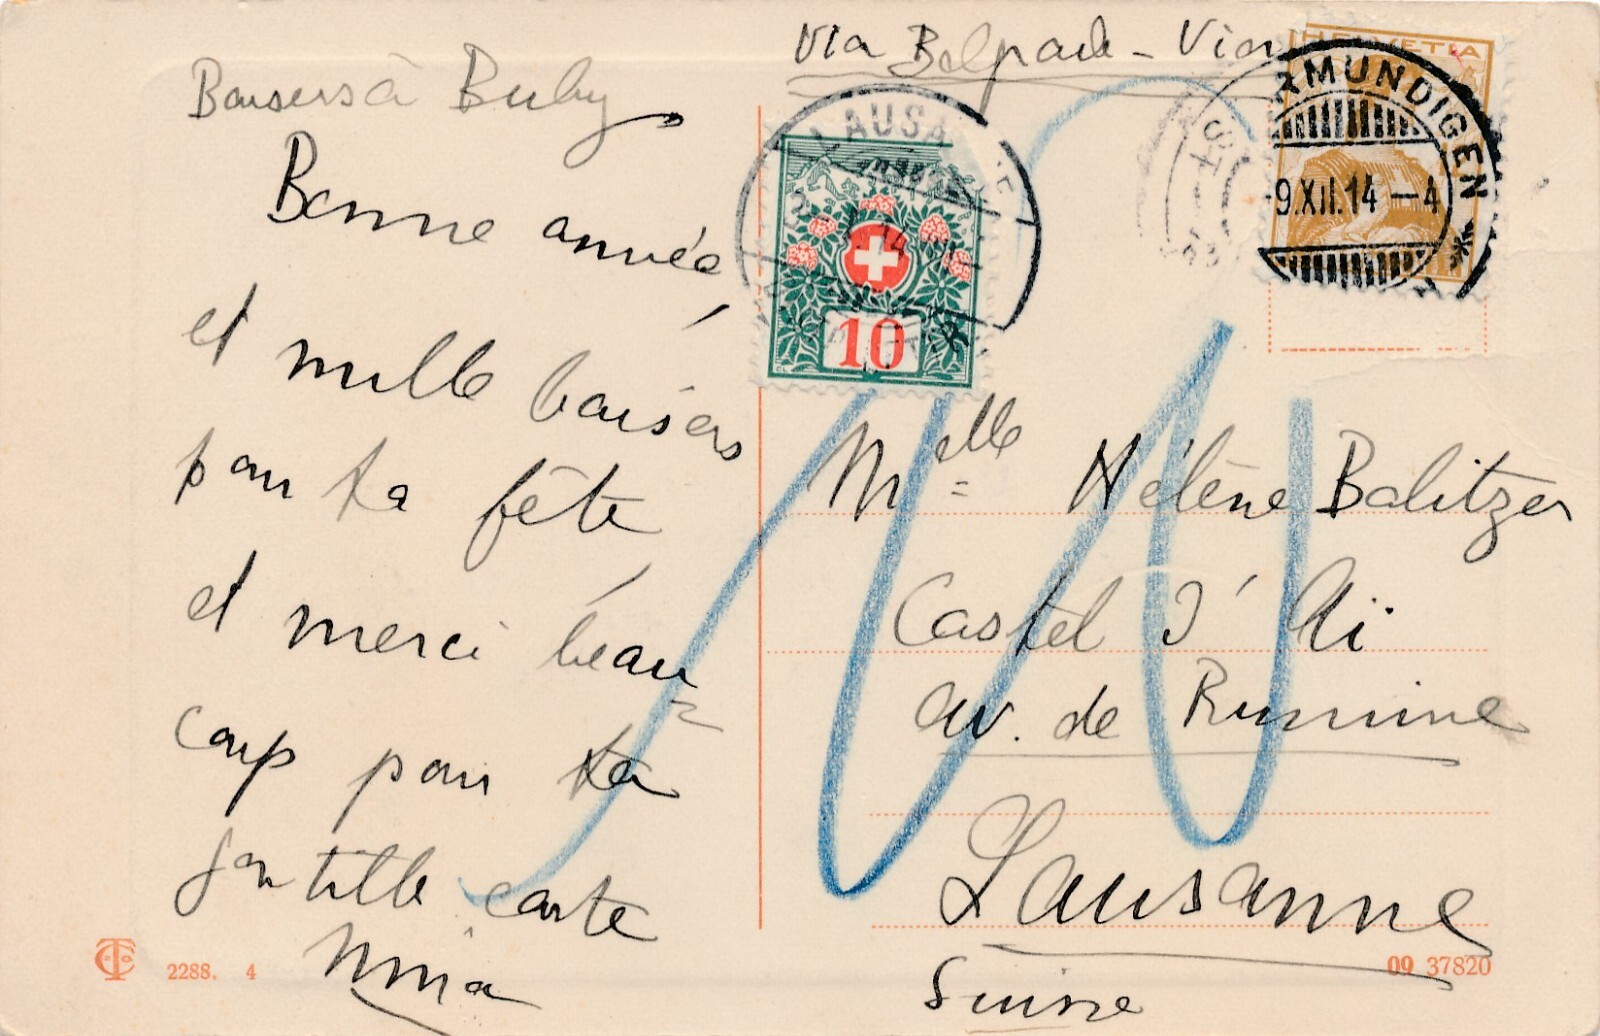 Baisers à Buby
Bonne année
et mille baisers
pour ta fête
et merci beau-
coup pour ta
gentille carte
Nina
2288. 4
Via Belgrade - Vien
HELVETIA
RMUNDIGEN
9.XII.14 -4
LAUSA
14
10
Melle Hélène Balitzer
Castel d'Aï
av. de Rumine
Lausanne
Suisse
09 37820